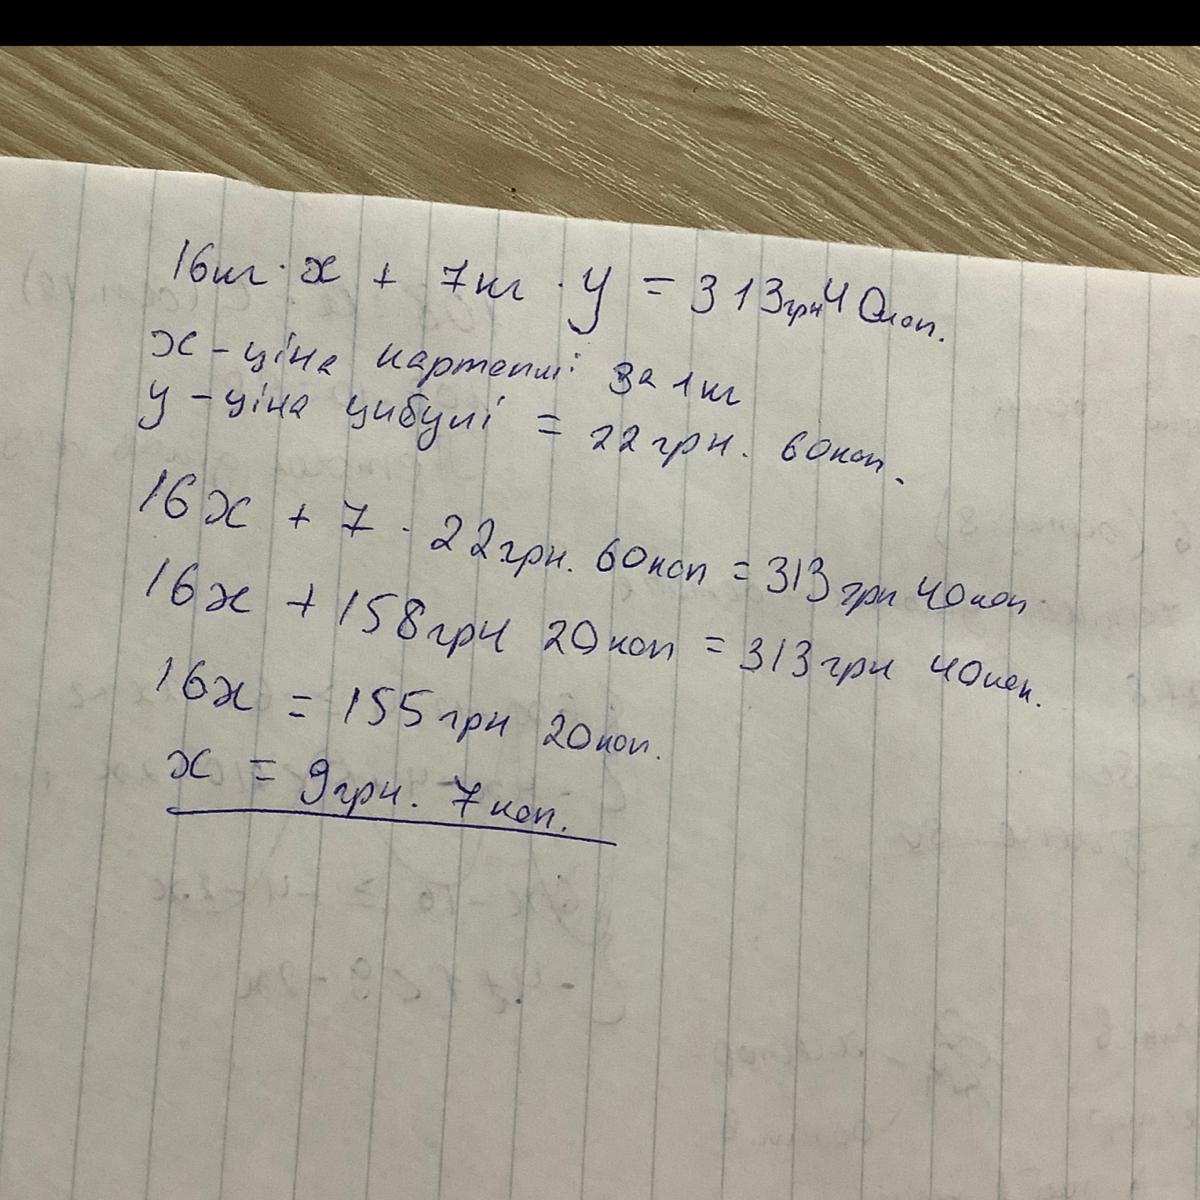 16кг · x + 7кг · y = 313грн40коп.
x - ціна картоплі за 1кг
y - ціна цибулі = 22грн. 60коп.
16x + 7 · 22грн. 60коп = 313грн 40коп
16x + 158грн 20коп = 313грн 40коп.
16x = 155грн 20коп.
x = 9грн. 7коп.